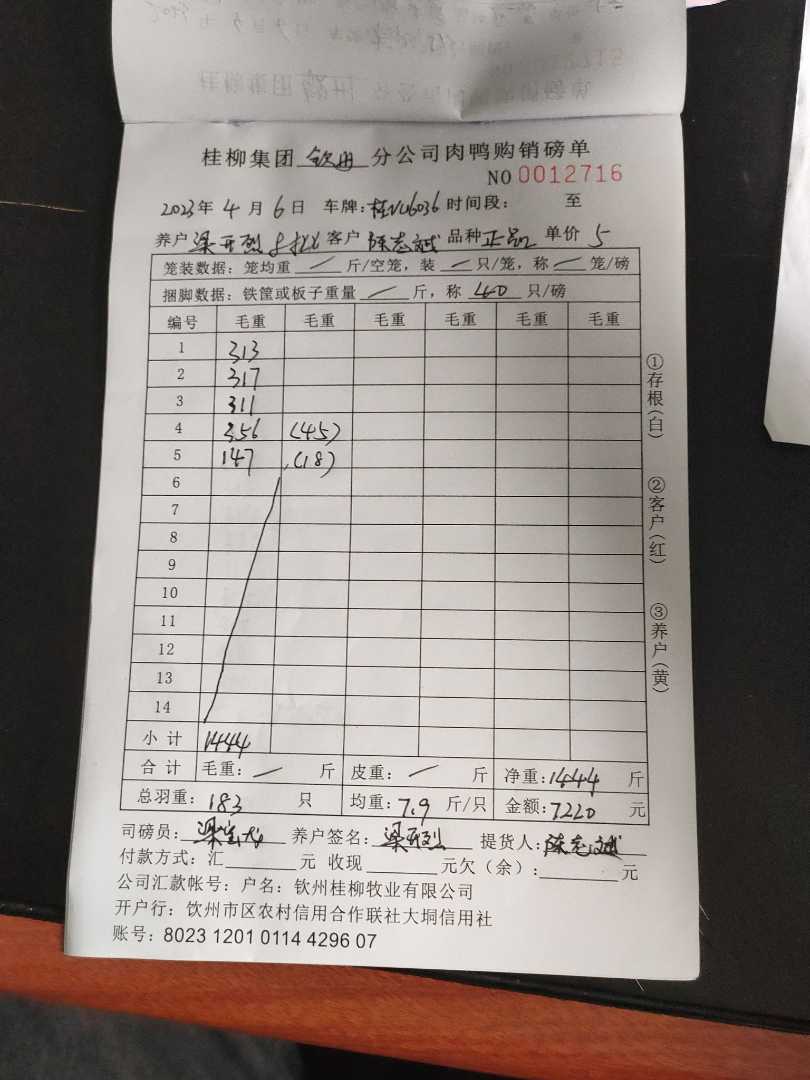 桂柳集团 钦州 分公司肉鸭购销磅单
NO 0012716
2023年 4 月 6 日 车牌:桂NU6036 时间段: 至
养户 梁开烈 客户 陈志斌 品种 正品 单价 5
笼装数据:笼均重 / 斤/空笼,装 / 只/笼,称 / 笼/磅
捆脚数据:铁筐或板子重量 / 斤,称 40 只/磅
编号 毛重 毛重 毛重 毛重 毛重 毛重
1 313
2 317
3 311
4 356 (45)
5 147 (18)
6
7
8
9
10
11
12
13
14
小 计 1444
合 计 毛重: / 斤 皮重: / 斤 净重:1444 斤
总羽重:183 只 均重:7.9 斤/只 金额:7220 元
司磅员: 养户签名:梁开烈 提货人:陈志斌
付款方式:汇 元 收现 元欠(余): 元
公司汇款帐号:户名:钦州桂柳牧业有限公司
开户行:钦州市区农村信用合作联社大垌信用社
账号:8023 1201 0114 4296 07
①存根(白)
②客户(红)
③养户(黄)